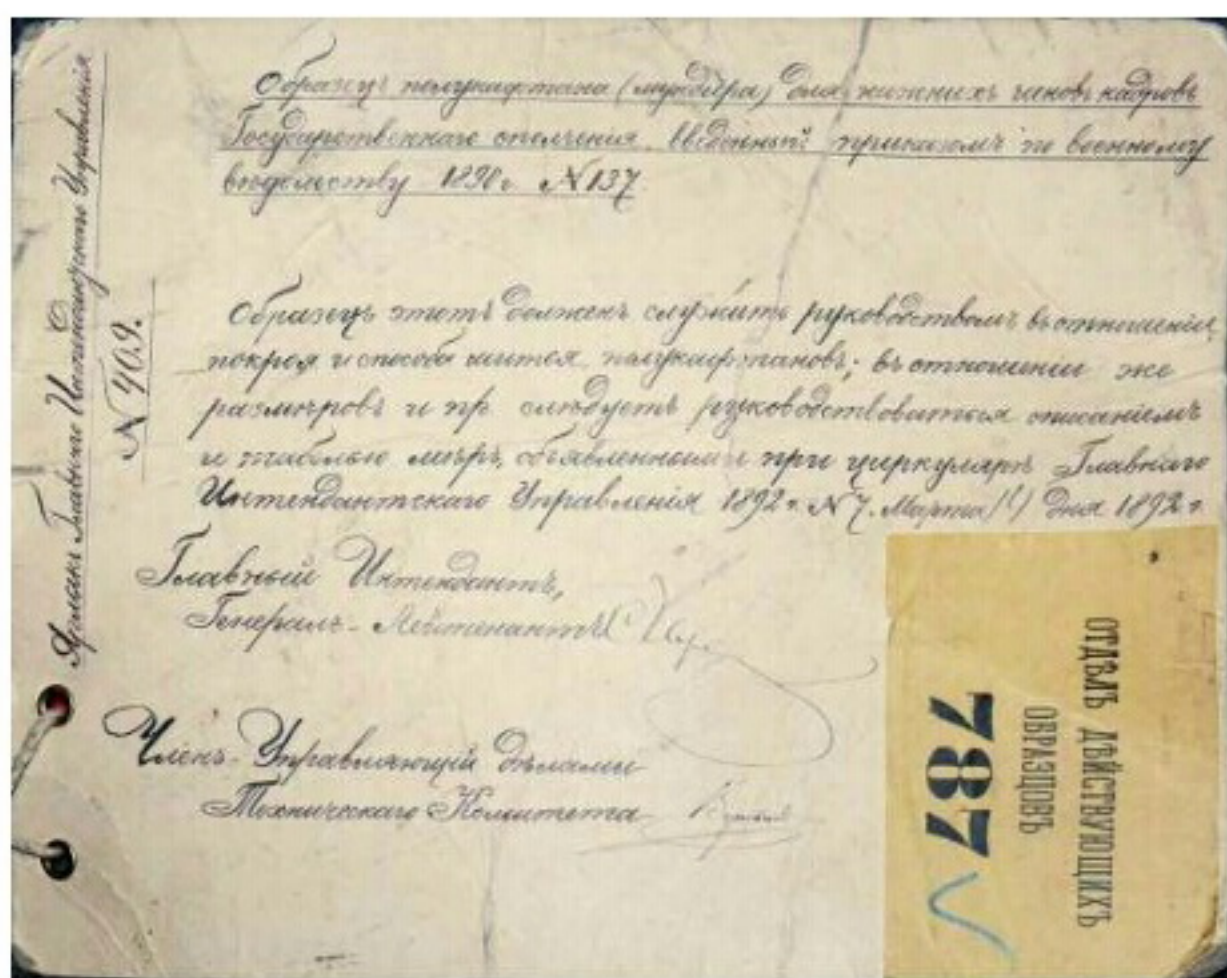 Образецъ полукафтана (мундира) для нижнихъ чиновъ кадровъ
Государственнаго ополченія, введенный приказомъ по военному
вѣдомству 1890 г. № 137
Образецъ этотъ долженъ служить руководствомъ въ отношеніи
покроя и способа шитья полукафтановъ; въ отношеніи же
размѣровъ и пр. слѣдуетъ руководствоваться описаніемъ
и таблью мѣръ, объявленными при циркулярѣ Главнаго
Интендантскаго Управленія 1892 г. № 7. Марта 11 дня 1892 г.
Главный Интендантъ,
Генералъ-Лейтенантъ
Членъ-Управляющій дѣлами
Техническаго Комитета
Ярлыкъ Главнаго Интендантскаго Управленія
№ 409.
ОТДѢЛЪ ДѢЙСТВУЮЩИХЪ
ОБРАЗЦОВЪ
787